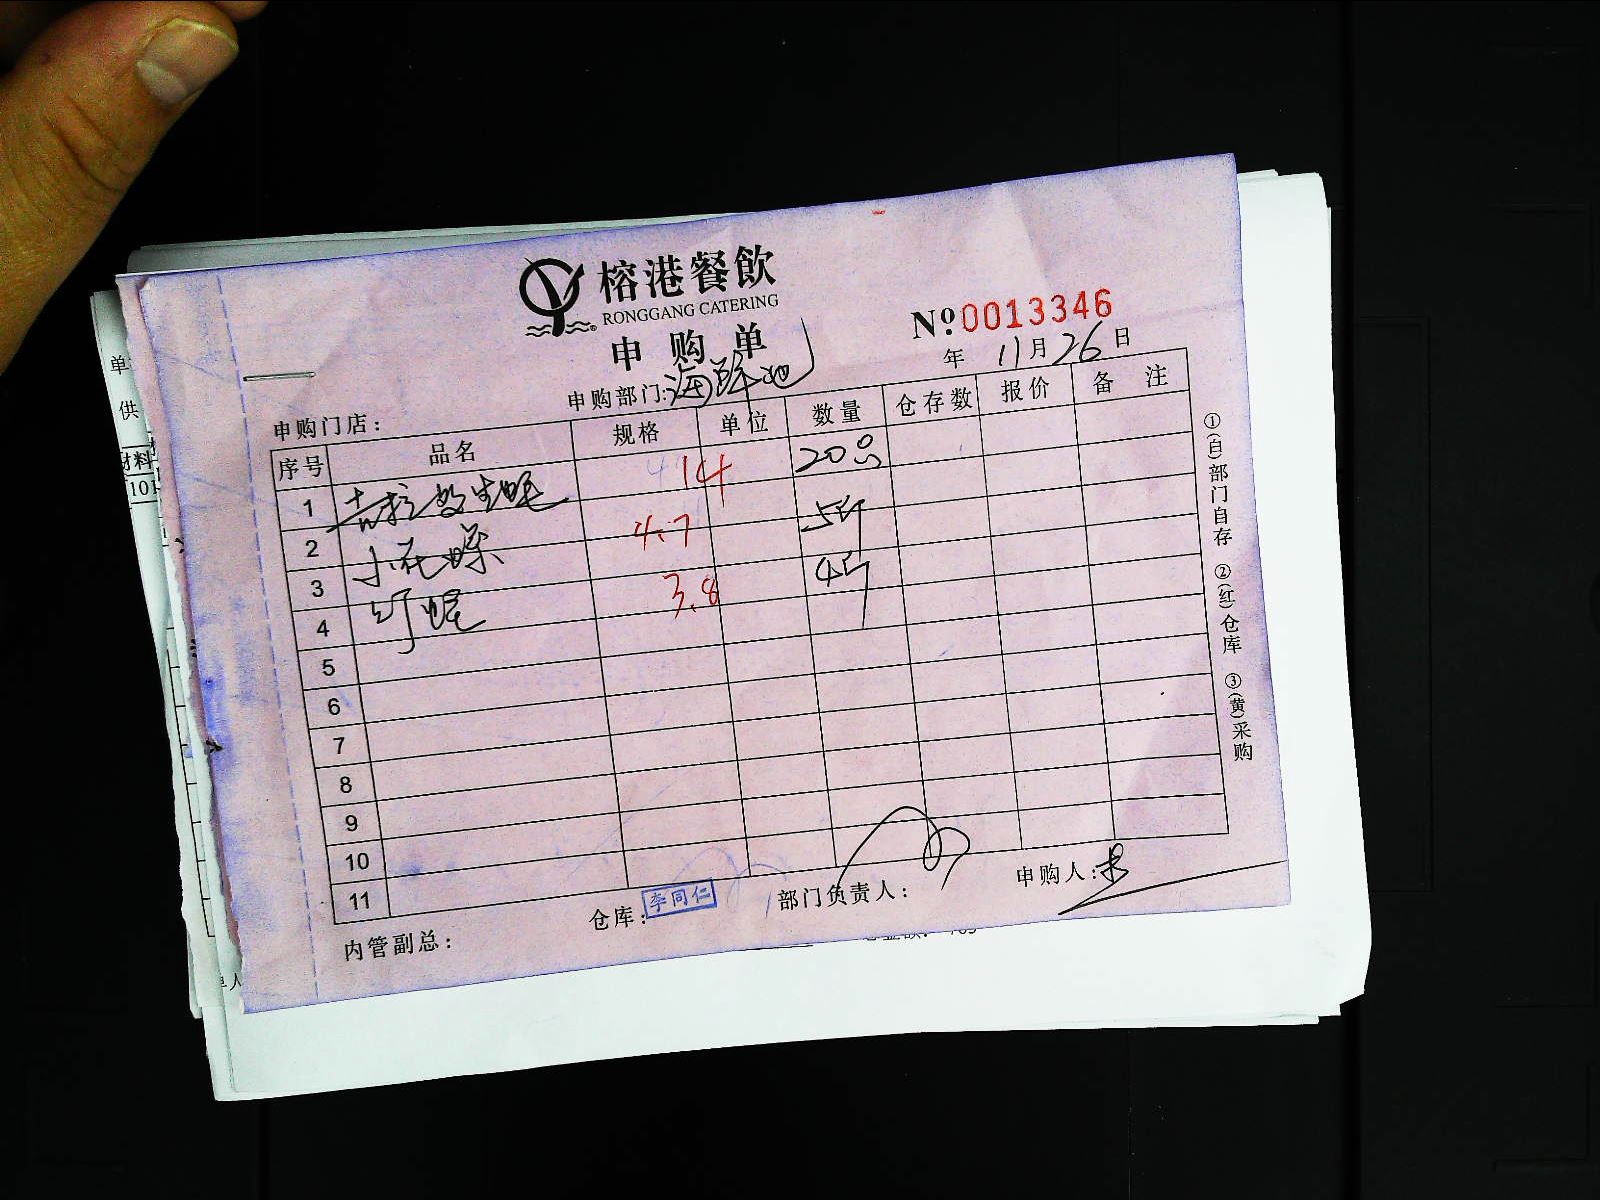 榕港餐飲
RONGGANG CATERING
申购单
Nº 0013346
年 11月26日
申购门店:
申购部门:海鲜池
序号 品名 规格 单位 数量 仓存数 报价 备注
1 吉拉多生蚝 14 20只
2 小花螺 4.7 5斤
3 3.8 4斤
4
5
6
7
8
9
10
11
内管副总:
仓库: 李同仁
部门负责人:
申购人:
①(白)部门自存 ②(红)仓库 ③(黄)采购
单
供
材料
101